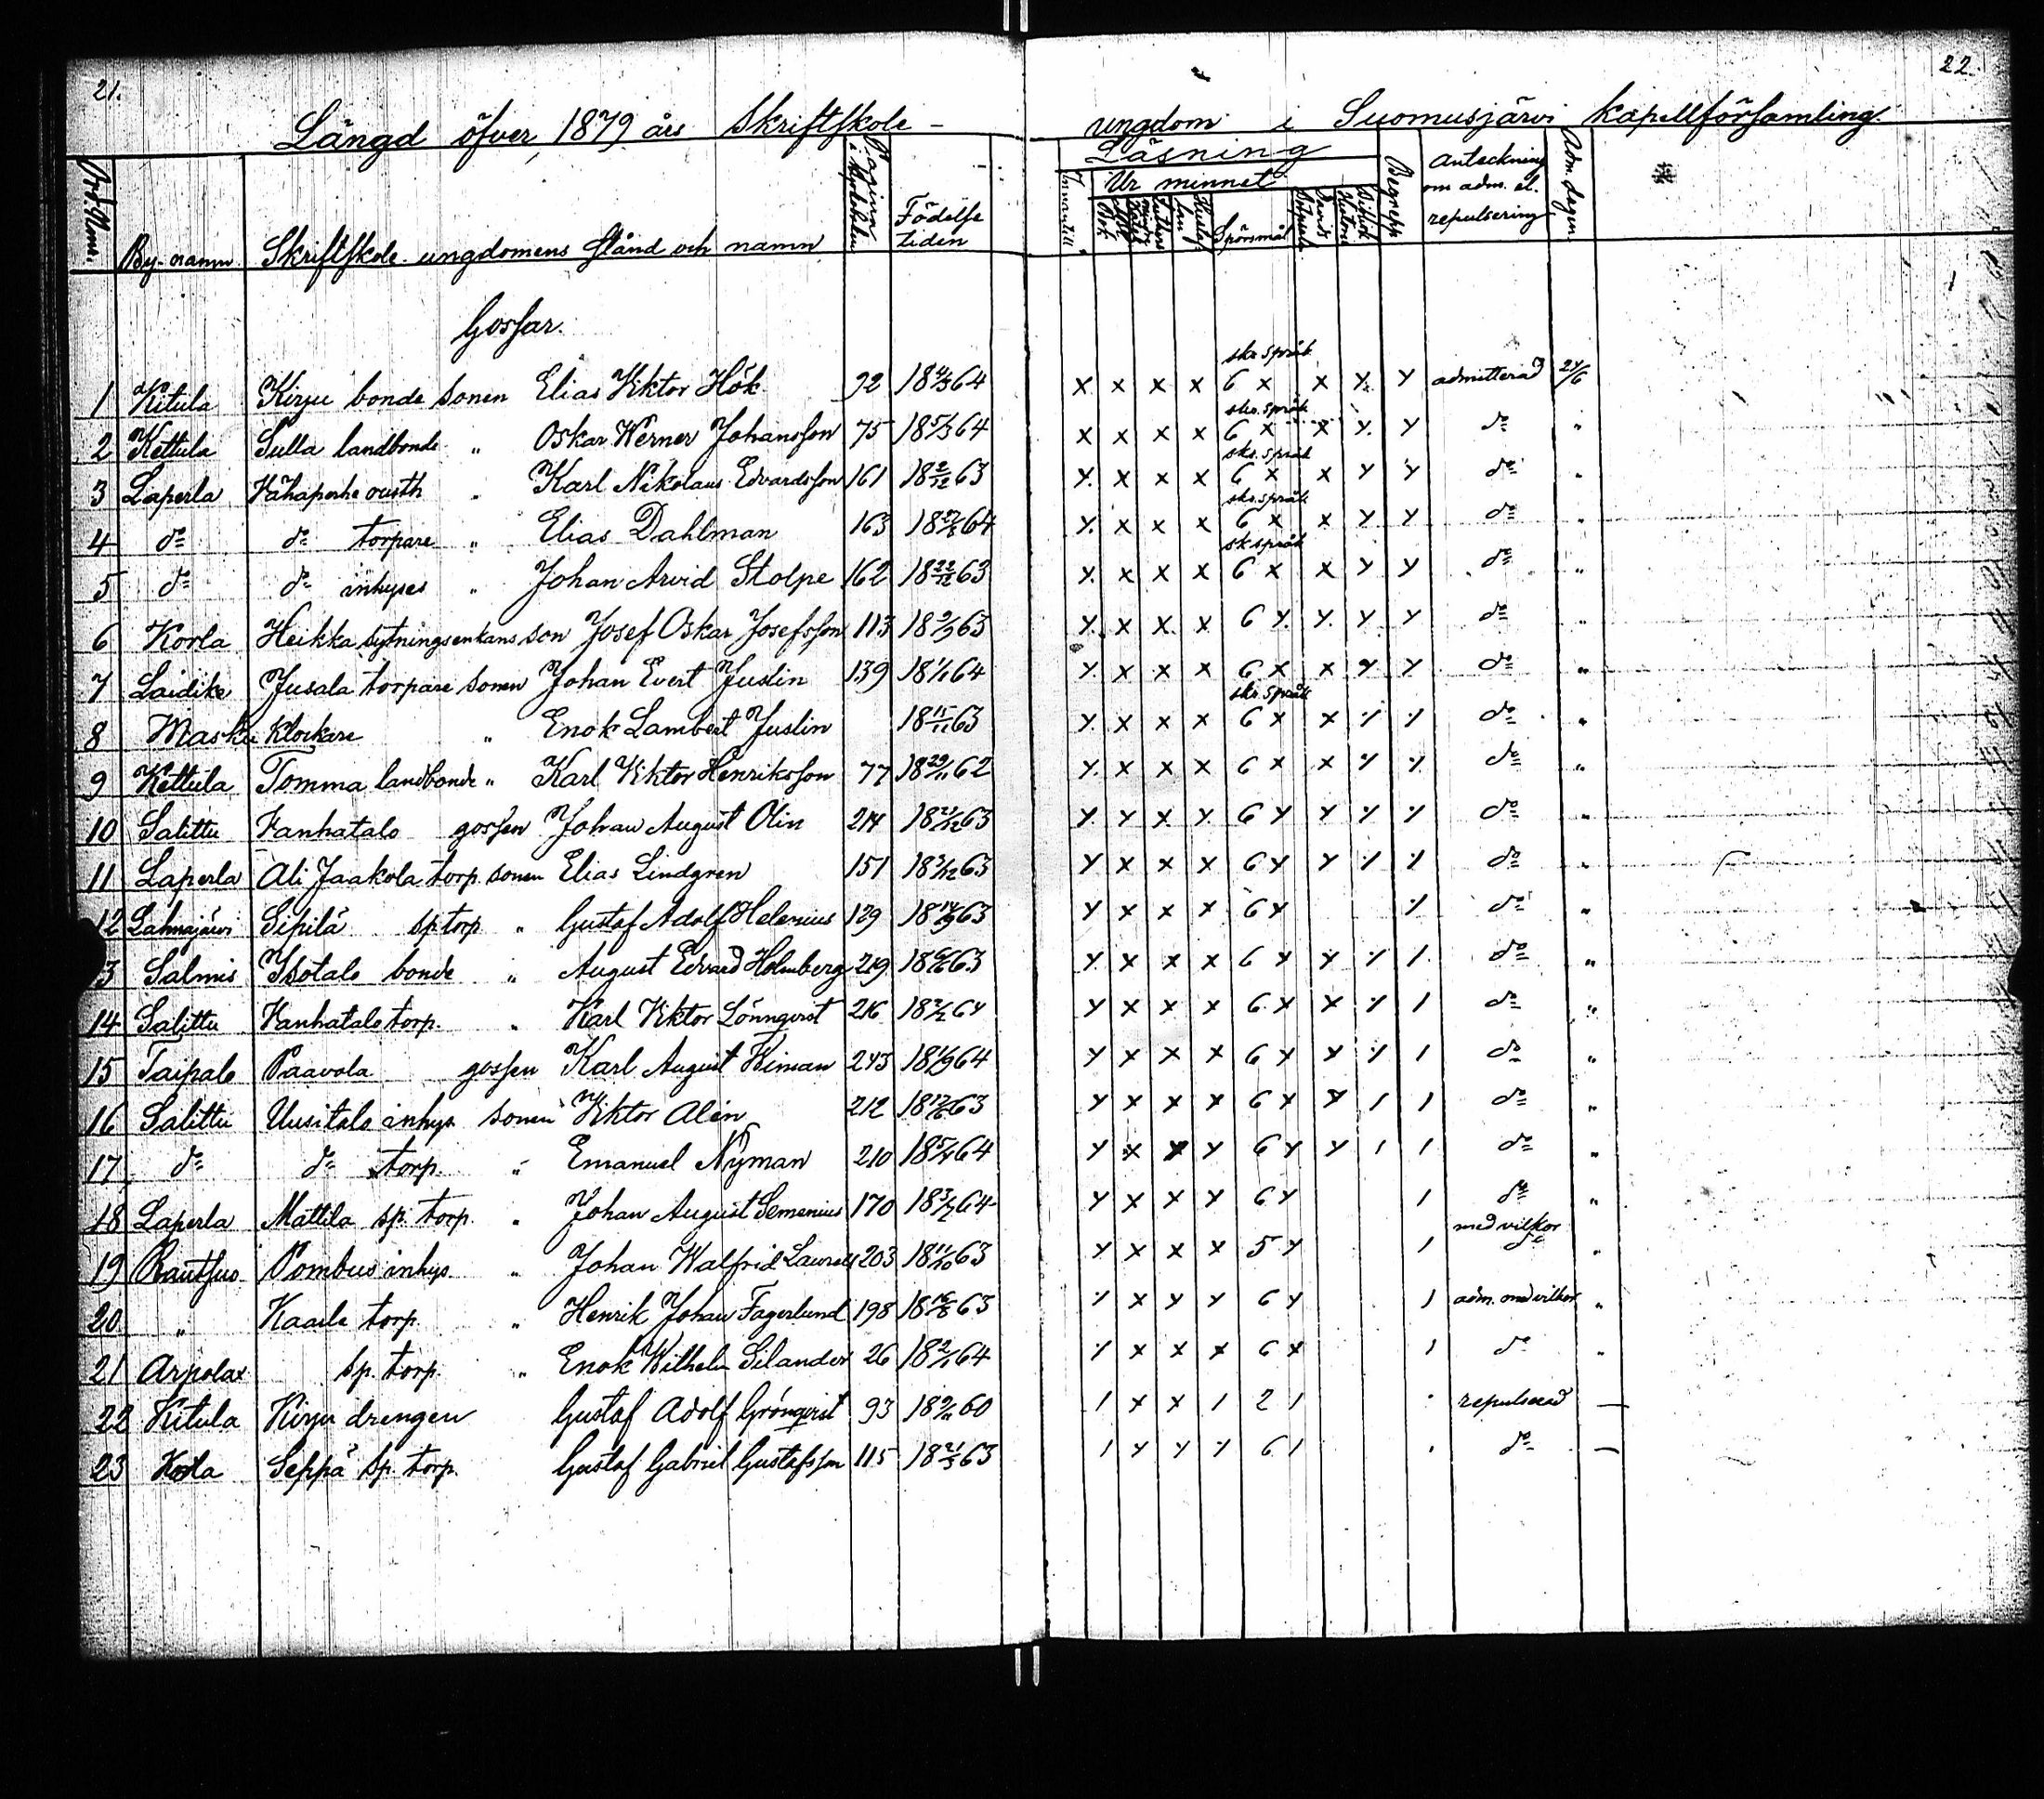 21.
22.
Längd öfver 1879 års Skriftskole-ungdom i Suomusjärvi kapellförsamling.
Ord. Num. By-namn Skriftskole-ungdomens stånd och namn Pagina i kyrkoboken Födelse tiden Innantill Läsning Ur minnet Spörsmål Begrepp Anteckning om adm. el. repulsering Adm. dagen
Gossar.
1 Kitula Kirju bonde sonen Elias Viktor Hök 92 18 4/3 64 x x x x skr. språk 6 x x x x admitterad 24/6
2 Kettula Sulla landbonde " Oskar Werner Johansson 75 18 5/3 64 x x x x skr. språk 6 x x x x do "
3 Laperla Vähäperhe " Karl Nikolaus Edvardsson 161 18 2/12 63 x x x x skr. språk 6 x x x x do "
4 do do torpare " Elias Dahlman 163 18 64 x x x x skr. språk 6 x x x x do "
5 do do inhyses " Johan Arvid Stolpe 162 18 22/12 63 x x x x sk språk 6 x x x x do "
6 Korla Heikka sytningsenkans son Josef Oskar Josefsson 113 18 63 x x x x 6 x x x x do "
7 Laidike Jusala torpare sonen Johan Evert Juslin 139 18 1/1 64 x x x x 6 x x x x do "
8 Masku Klockare " Enok Lambert Juslin 18 15/11 63 x x x x skr. språk 6 x x x x do "
9 Kettula Tomma landbonde " Karl Viktor Henriksson 77 18 29/11 62 x x x x 6 x x x x do "
10 Salittu Vanhatalo gossen Johan August Olin 214 18 63 x x x x 6 x x x x do "
11 Laperla Ali Jaakola torp. sonen Elias Lindgren 151 18 3/12 63 x x x x 6 x x x x do "
12 Lahnajärvi Sipilä sp. torp " Gustaf Adolf Helenius 129 18 14/9 63 x x x x 6 x x do "
13 Salmis Isotalo bonde " August Edvard Holmberg 219 18 63 x x x x 6 x x x 1 do "
14 Salittu Vanhatalo torp. " Karl Viktor Lönnqvist 216 18 64 x x x x 6 x x x 1 do "
15 Taipale Paavola gossen Karl August Wiman 243 18 64 x x x x 6 x x x 1 do "
16 Salittu Uusitalo inhys sonen Viktor Alén 212 18 63 x x x x 6 x x 1 1 do "
17 do do torp. " Emanuel Nyman 210 18 64 x x x x 6 x x 1 1 do "
18 Laperla Mattila sp. torp. " Johan August Semenius 170 18 64 x x x x 6 x 1 do "
19 Rautsuo Pombus inhys. " Johan Walfrid Laurell 203 18 11/10 63 x x x x 5 x 1 med vilkor do "
20 " Kaarla torp. " Henrik Johan Fagerlund 198 18 16/8 63 x x x x 6 x 1 adm. med vilkor "
21 Arpolax sp. torp. " Enok Wilhelm Silander 26 18 2/1 64 x x x x 6 x 1 do "
22 Kitula Kirju drengen Gustaf Adolf Grönqvist 93 18 60 1 x x 1 2 1 repulserad —
23 Korla Seppä sp. torp. Gustaf Gabriel Gustafsson 115 18 21/3 63 1 x x x 6 1 do —